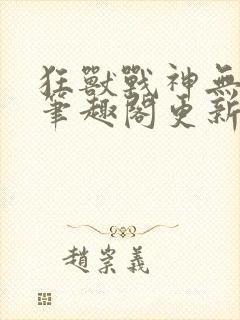 狂獸戰神無
筆趣閣更新
趙崇義